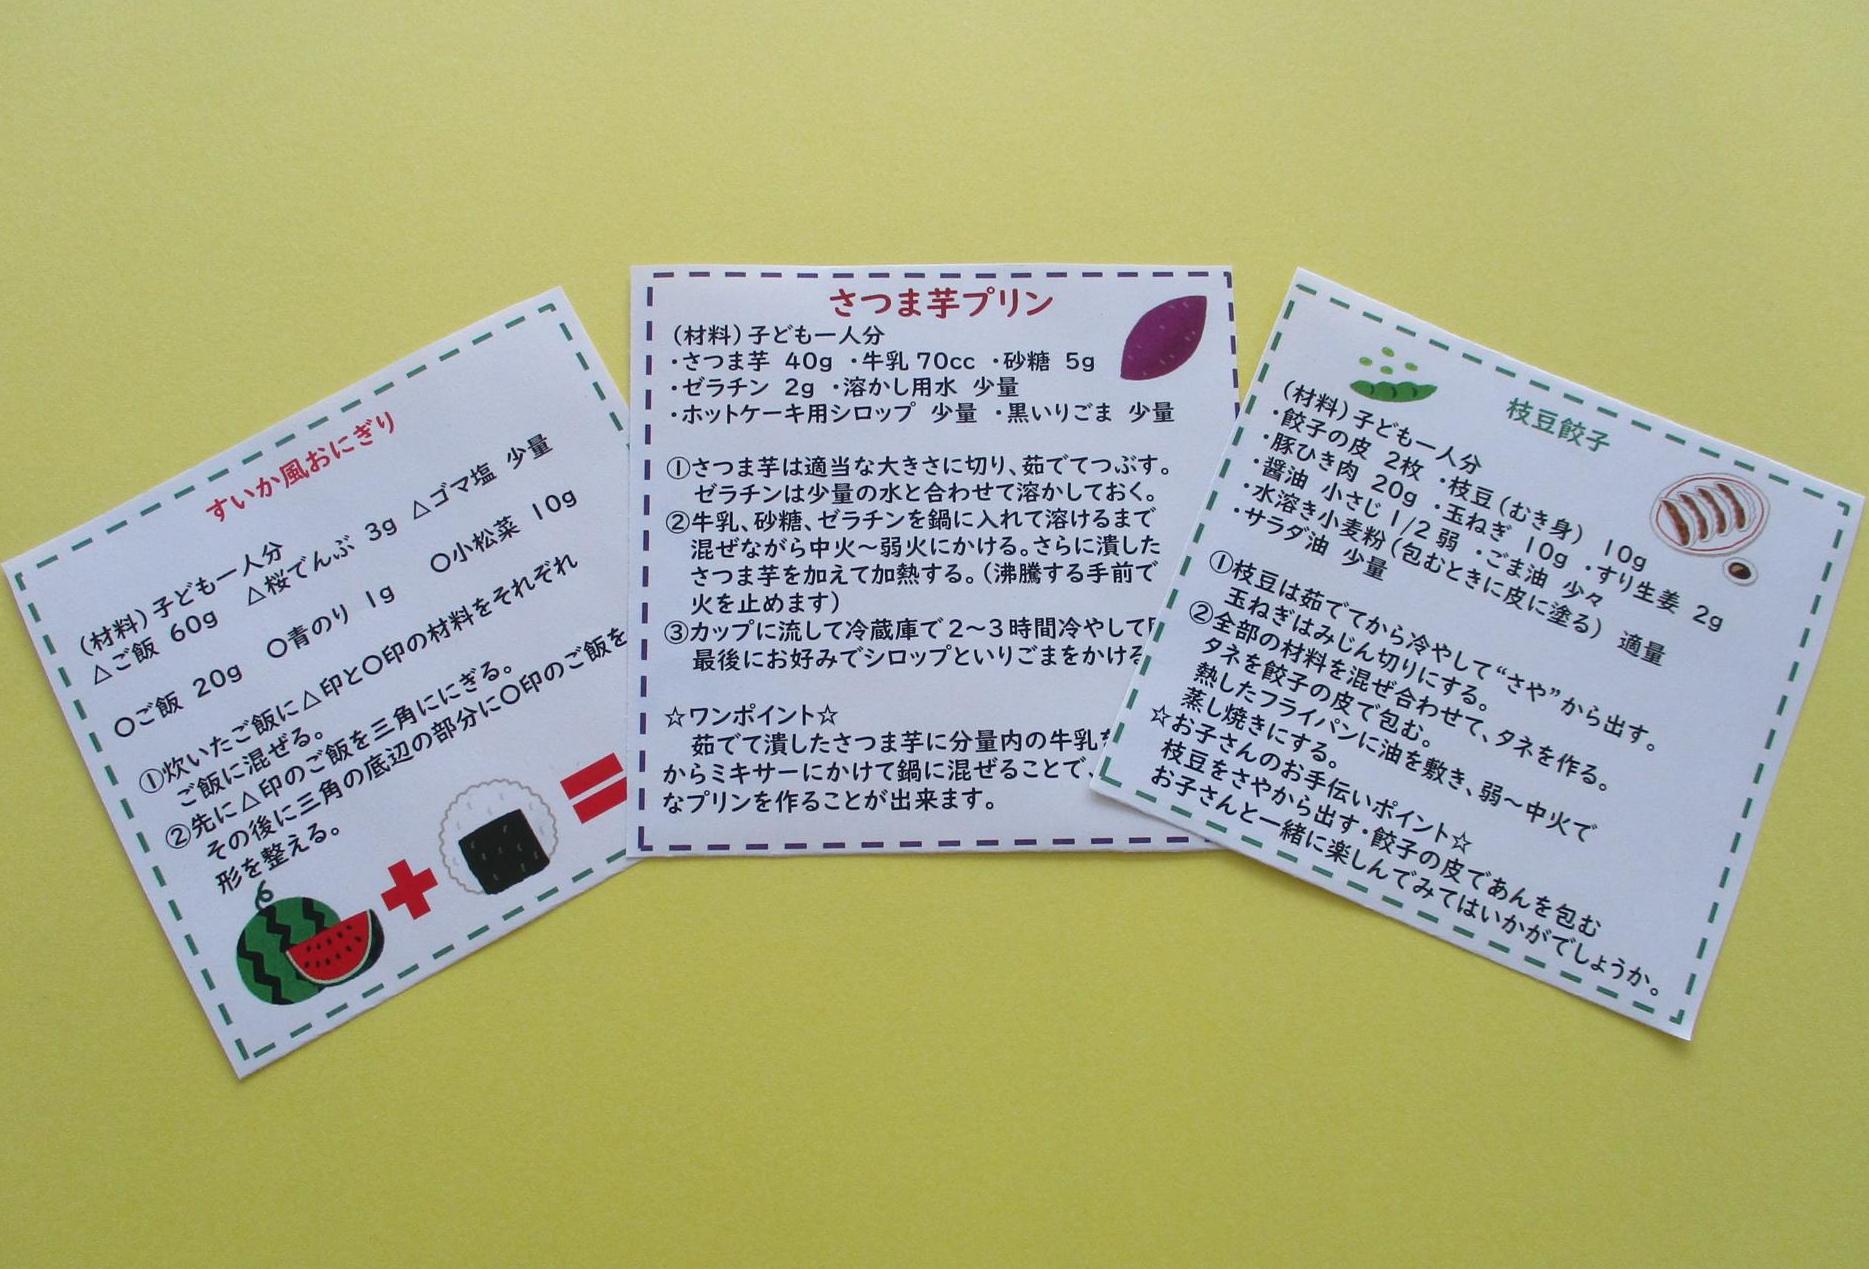 すいか風おにぎり
(材料)子ども一人分
△ご飯 60g △桜でんぶ 3g △ゴマ塩 少量
〇ご飯 20g 〇青のり 1g 〇小松菜 10g
①炊いたご飯に△印と〇印の材料をそれぞれ
ご飯に混ぜる。
②先に△印のご飯を三角ににぎる。
その後に三角の底辺の部分に〇印のご飯を
形を整える。
さつま芋プリン
(材料)子ども一人分
・さつま芋 40g ・牛乳 70cc ・砂糖 5g
・ゼラチン 2g ・溶かし用水 少量
・ホットケーキ用シロップ 少量 ・黒いりごま 少量
①さつま芋は適当な大きさに切り、茹でてつぶす。
ゼラチンは少量の水と合わせて溶かしておく。
②牛乳、砂糖、ゼラチンを鍋に入れて溶けるまで
混ぜながら中火～弱火にかける。さらに潰した
さつま芋を加えて加熱する。(沸騰する手前で
火を止めます)
③カップに流して冷蔵庫で2～3時間冷やして
最後にお好みでシロップといりごまをかける
☆ワンポイント☆
茹でて潰したさつま芋に分量内の牛乳を
からミキサーにかけて鍋に混ぜることで、
なプリンを作ることが出来ます。
枝豆餃子
(材料)子ども一人分
・餃子の皮 2枚 ・枝豆(むき身) 10g
・豚ひき肉 20g ・玉ねぎ 10g ・すり生姜 2g
・醤油 小さじ1/2弱 ・ごま油 少々
・水溶き小麦粉(包むときに皮に塗る) 適量
・サラダ油 少量
①枝豆は茹でてから冷やして“さや”から出す。
玉ねぎはみじん切りにする。
②全部の材料を混ぜ合わせて、タネを作る。
タネを餃子の皮で包む。
熱したフライパンに油を敷き、弱～中火で
蒸し焼きにする。
☆お子さんのお手伝いポイント☆
枝豆をさやから出す・餃子の皮であんを包む
お子さんと一緒に楽しんでみてはいかがでしょうか。